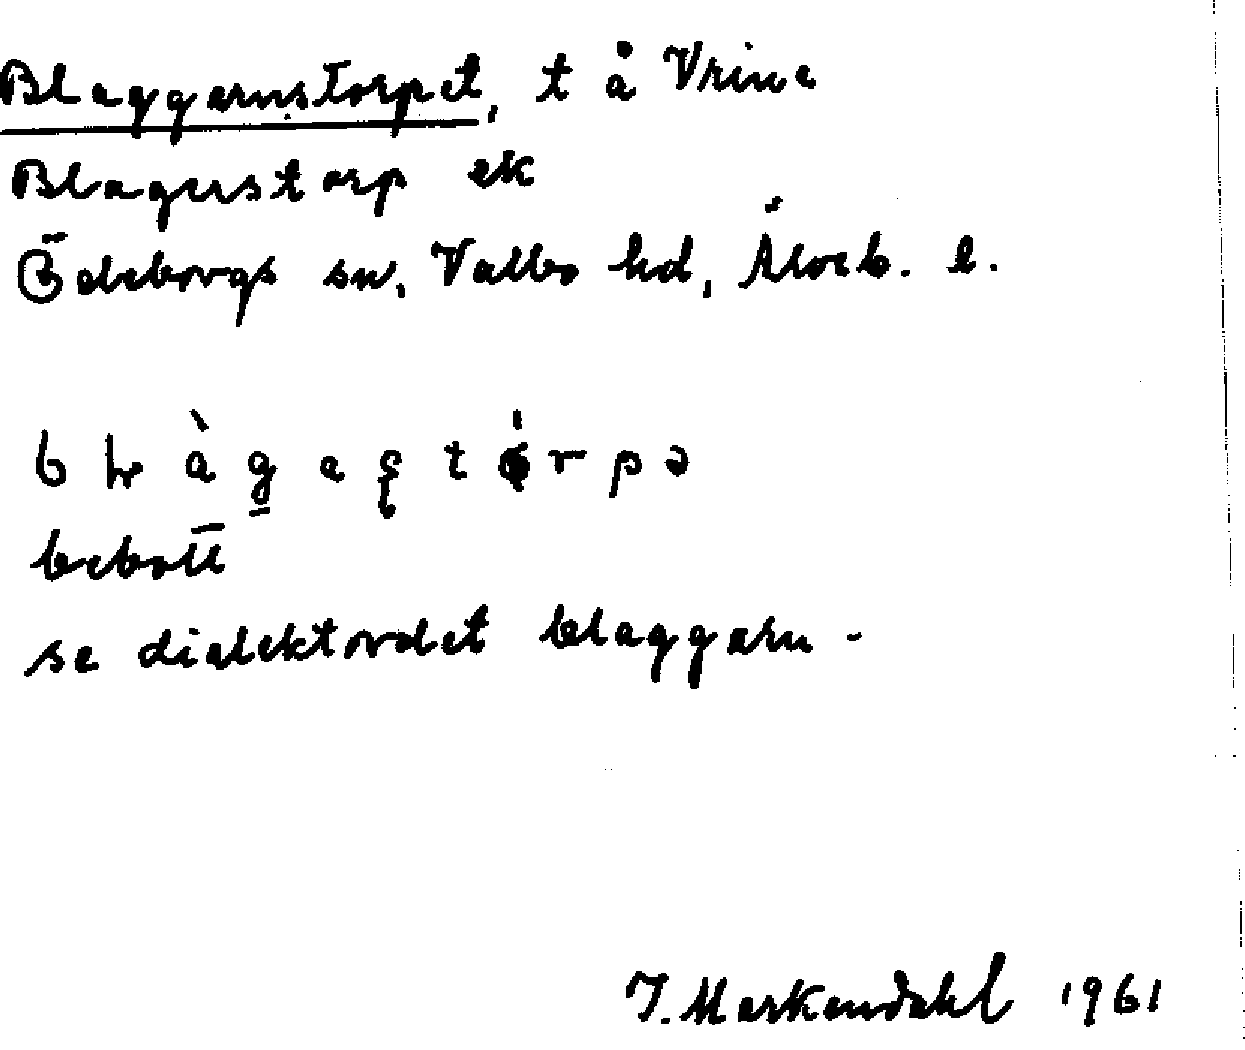 Blaggarnstorpet, t å Vrine
Blagerstorp ek
Ödeborgs sn, Valbo hd, Älvsb. l.
bebott
se dialektordet blaggarn -
J. Markendahl 1961